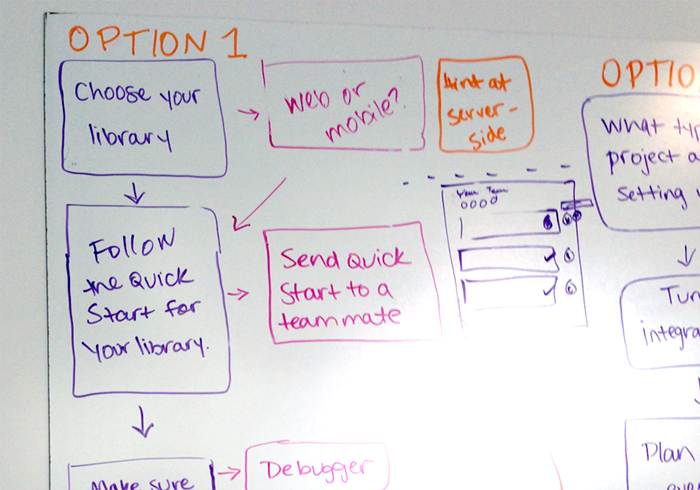 OPTION 1
Choose your
library
Web or
mobile?
hint at
server-
side
Follow
the Quick
Start for
your library.
Send Quick
Start to a
teammate
Your Team
Make sure
Debugger
OPTIO
What typ
project a
setting
Tun
integra
Plan